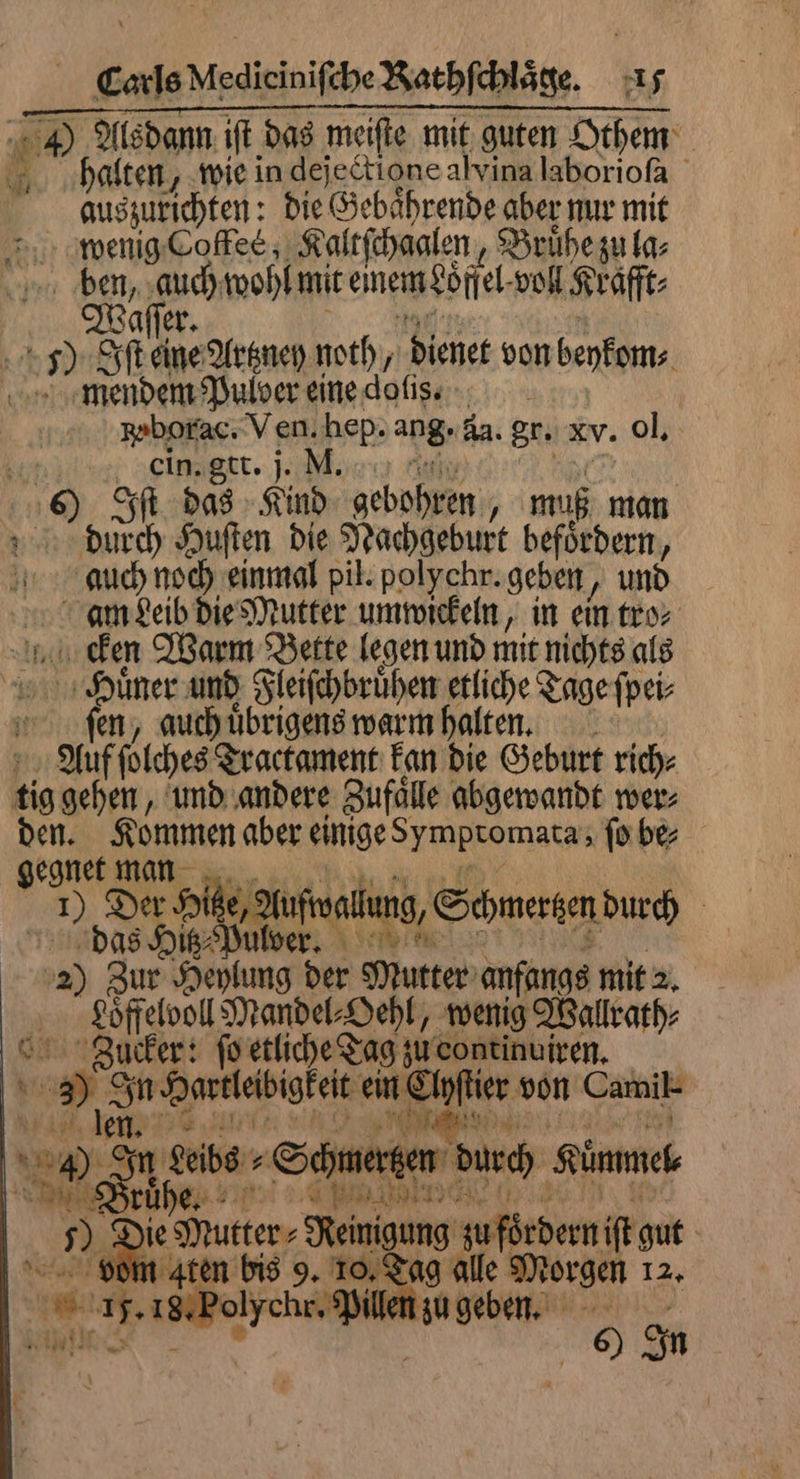 Carls Mediciniſche Rathſchlaͤge. 15
4) Alsdann iſt das meiſte mit guten Othem
halten, wie in dejectione alvina laborioſa
auszurichten: die Gebaͤhrende aber nur mit
wenig Coffeé, Kaltſchaalen, Bruͤhe zu la⸗
ben, auch wohl mit einem Loͤffel-voll Kraͤfft⸗
Waſſer.
5) Iſt eine Artzney noth, dienet von beykom⸗
mendem Pulver eine doſis.
℞ borac. Ven. hep. ang. āa. gr. xv. ol.
cin. gtt. j. M.
6) Iſt das Kind gebohren, muß man
durch Huſten die Nachgeburt befoͤrdern,
auch noch einmal pil. polychr. geben, und
am Leib die Mutter umwickeln, in ein tro⸗
cken Warm Bette legen und mit nichts als
Huͤner und Fleiſchbruͤhen etliche Tage ſpei⸗
ſen, auch uͤbrigens warm halten.
Auf ſolches Tractament kan die Geburt rich⸗
tig gehen, und andere Zufaͤlle abgewandt wer⸗
den. Kommen aber einige Symptomata, ſo be⸗
gegnet man
1) Der Hitze, Aufwallung, Schmertzen durch
das Hitz⸗Pulver.
2) Zur Heylung der Mutter anfangs mit 2.
Loͤffelvoll Mandel⸗Oehl, wenig Wallrath⸗
Zucker: ſo etliche Tag zu continuiren.
3) In Hartleibigkeit ein Clyſtier von Camil-
len.
4) In Leibs⸗Schmertzen durch Kuͤmmel⸗
Bruͤhe.
5) Die Mutter⸗Reinigung zu foͤrdern iſt gut
vom 4ten bis 9. 10. Tag alle Morgen 12.
15. 18. Polychr. Pillen zu geben.
6) In